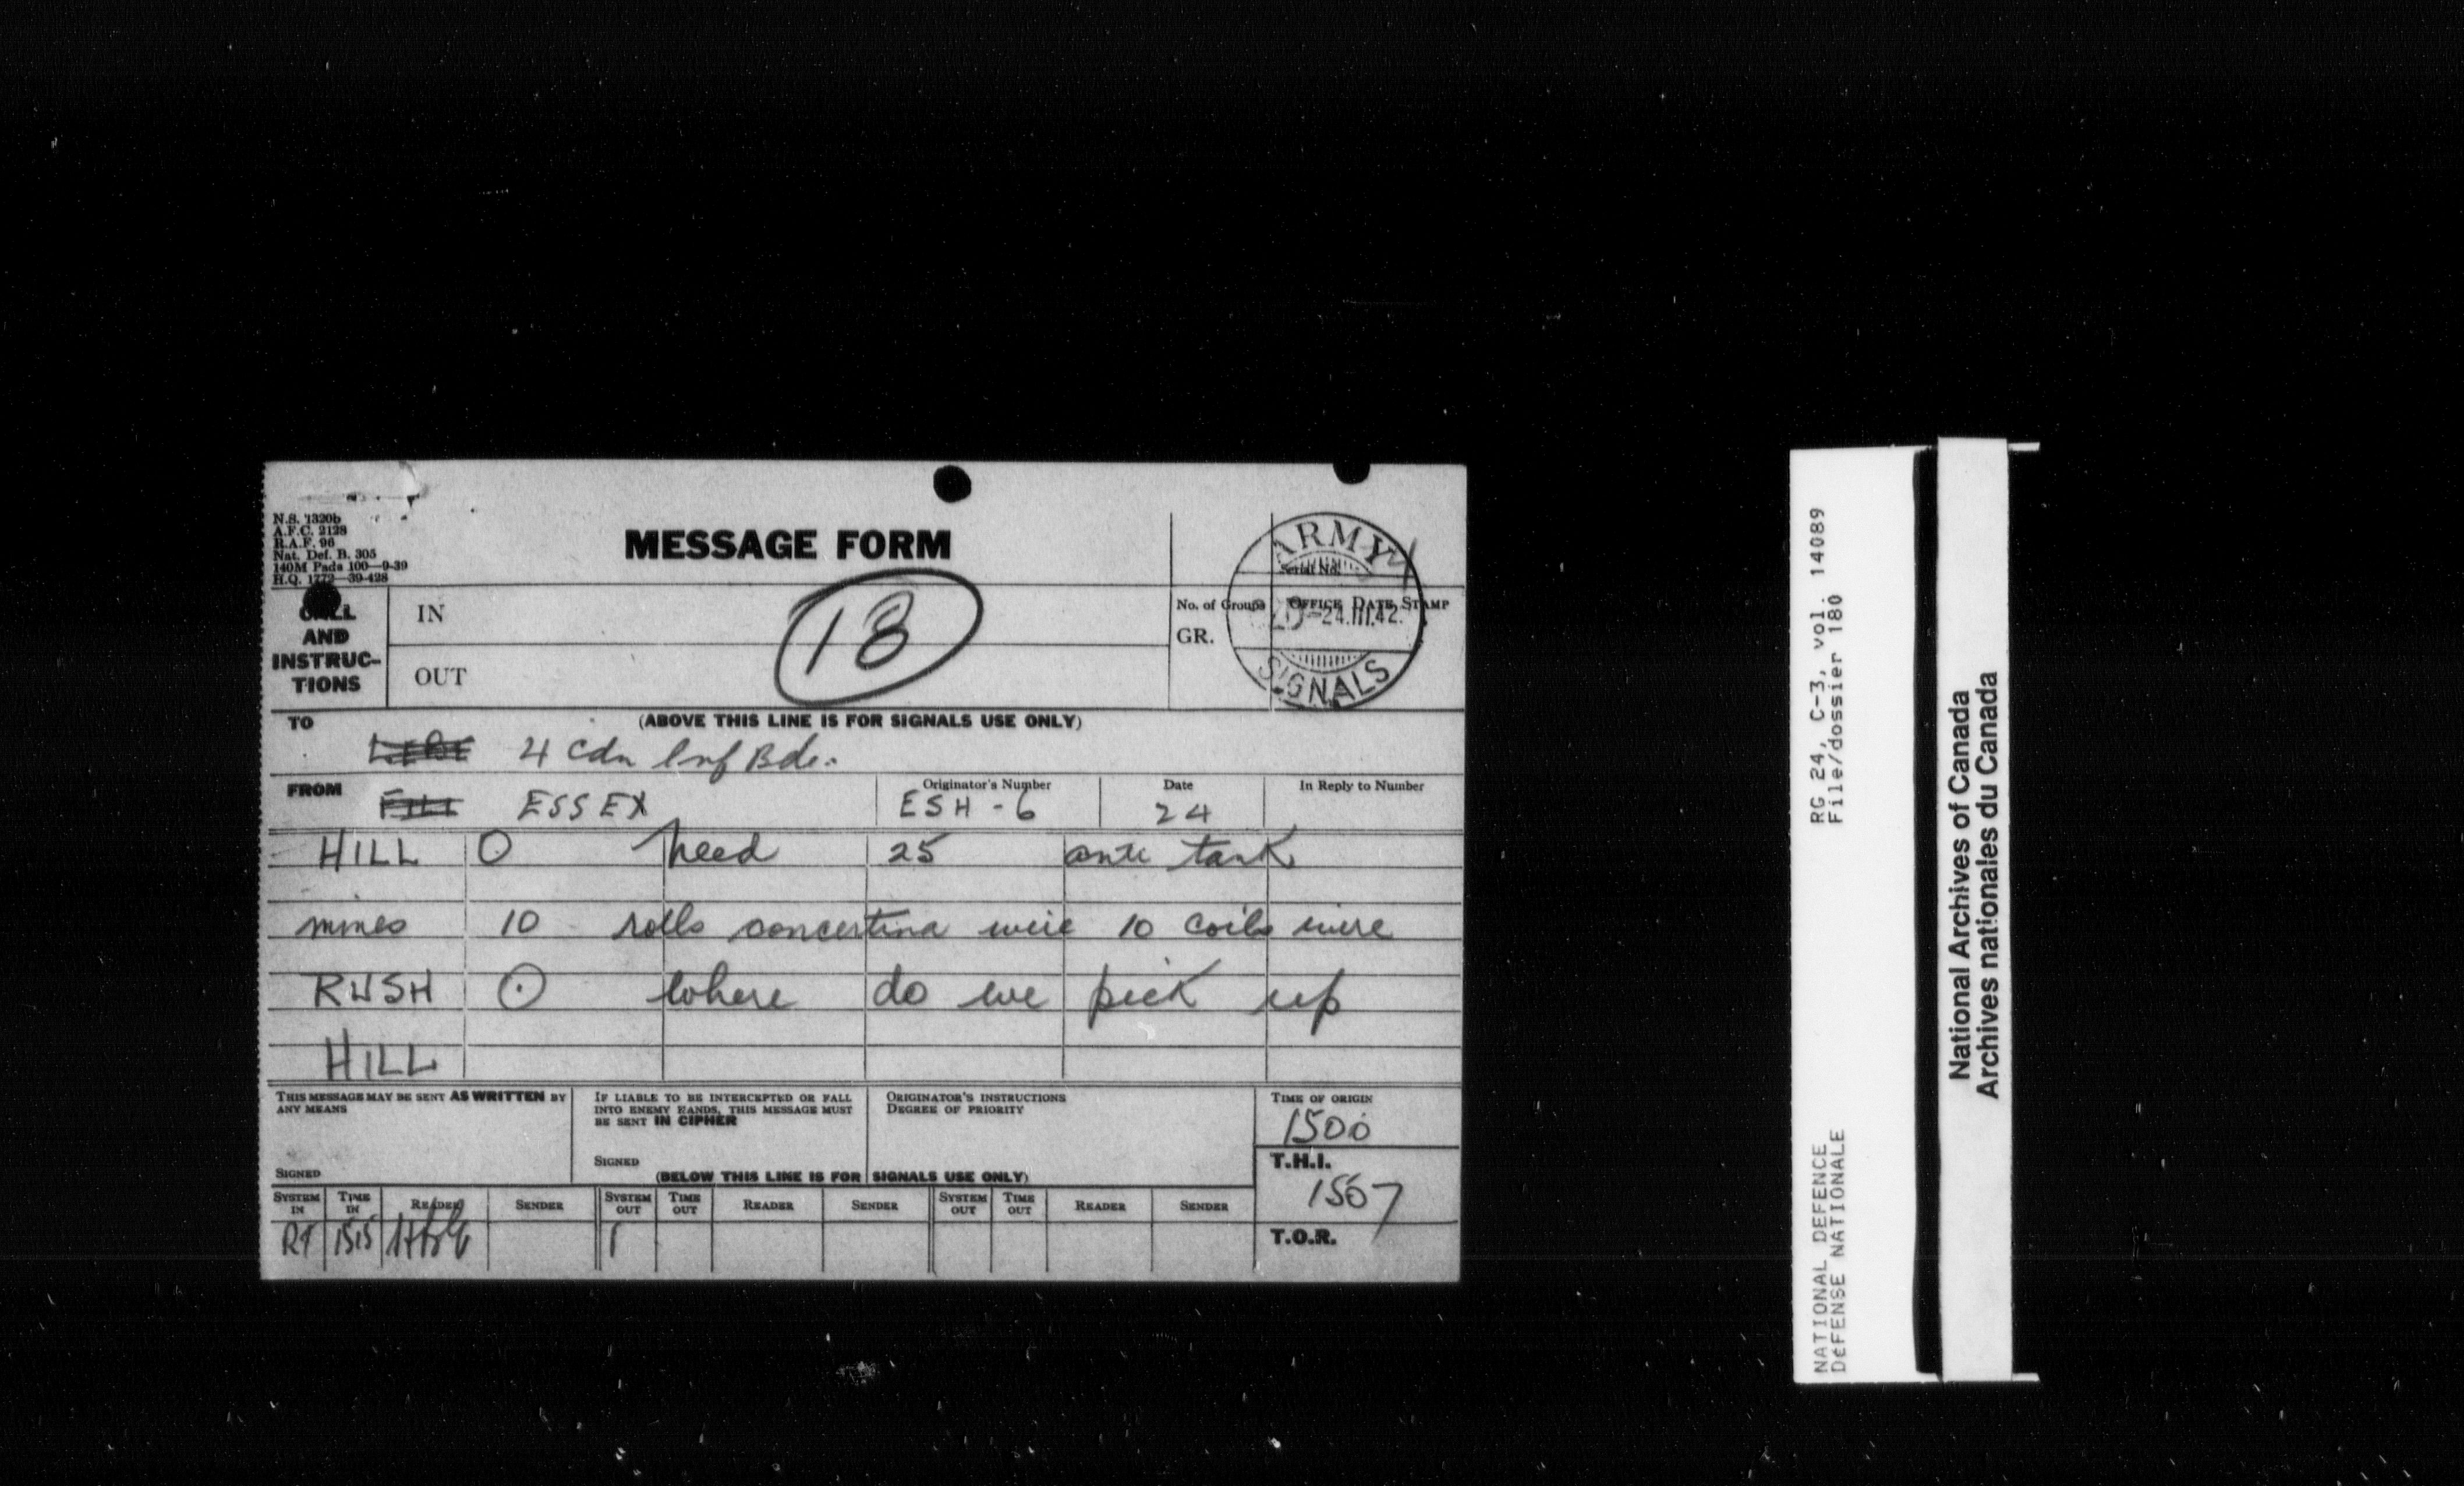 N.S. 1320b
A.F.C. 2128
R.A.F. 96
Nat. Def. B. 305
140M Pads 100—9-39
H.Q. 1772—39-428
MESSAGE FORM
Serial No.
ARMY
24.III.42.
SIGNALS
CALL AND INSTRUC-TIONS
IN
18
No. of Groups
OFFICE DATE STAMP
GR.
OUT
TO
(ABOVE THIS LINE IS FOR SIGNALS USE ONLY)
4 Cdn Inf Bde.
FROM
ESSEX
Originator's Number
ESH - 6
Date
24
In Reply to Number
HILL O need 25 anti tank
mines 10 rolls concertina wire 10 coils wire
RUSH ⊙ where do we pick up
HILL
THIS MESSAGE MAY BE SENT AS WRITTEN BY
ANY MEANS
SIGNED
IF LIABLE TO BE INTERCEPTED OR FALL
INTO ENEMY HANDS, THIS MESSAGE MUST
BE SENT IN CIPHER
SIGNED
ORIGINATOR'S INSTRUCTIONS
DEGREE OF PRIORITY
TIME OF ORIGIN
1500
T.H.I.
1507
(BELOW THIS LINE IS FOR SIGNALS USE ONLY)
SYSTEM IN TIME IN READER SENDER SYSTEM OUT TIME OUT READER SENDER SYSTEM OUT TIME OUT READER SENDER
RT 1515
T.O.R.
RG 24, C-3, vol. 14089
File/dossier 180
NATIONAL DEFENCE
DÉFENSE NATIONALE
National Archives of Canada
Archives nationales du Canada